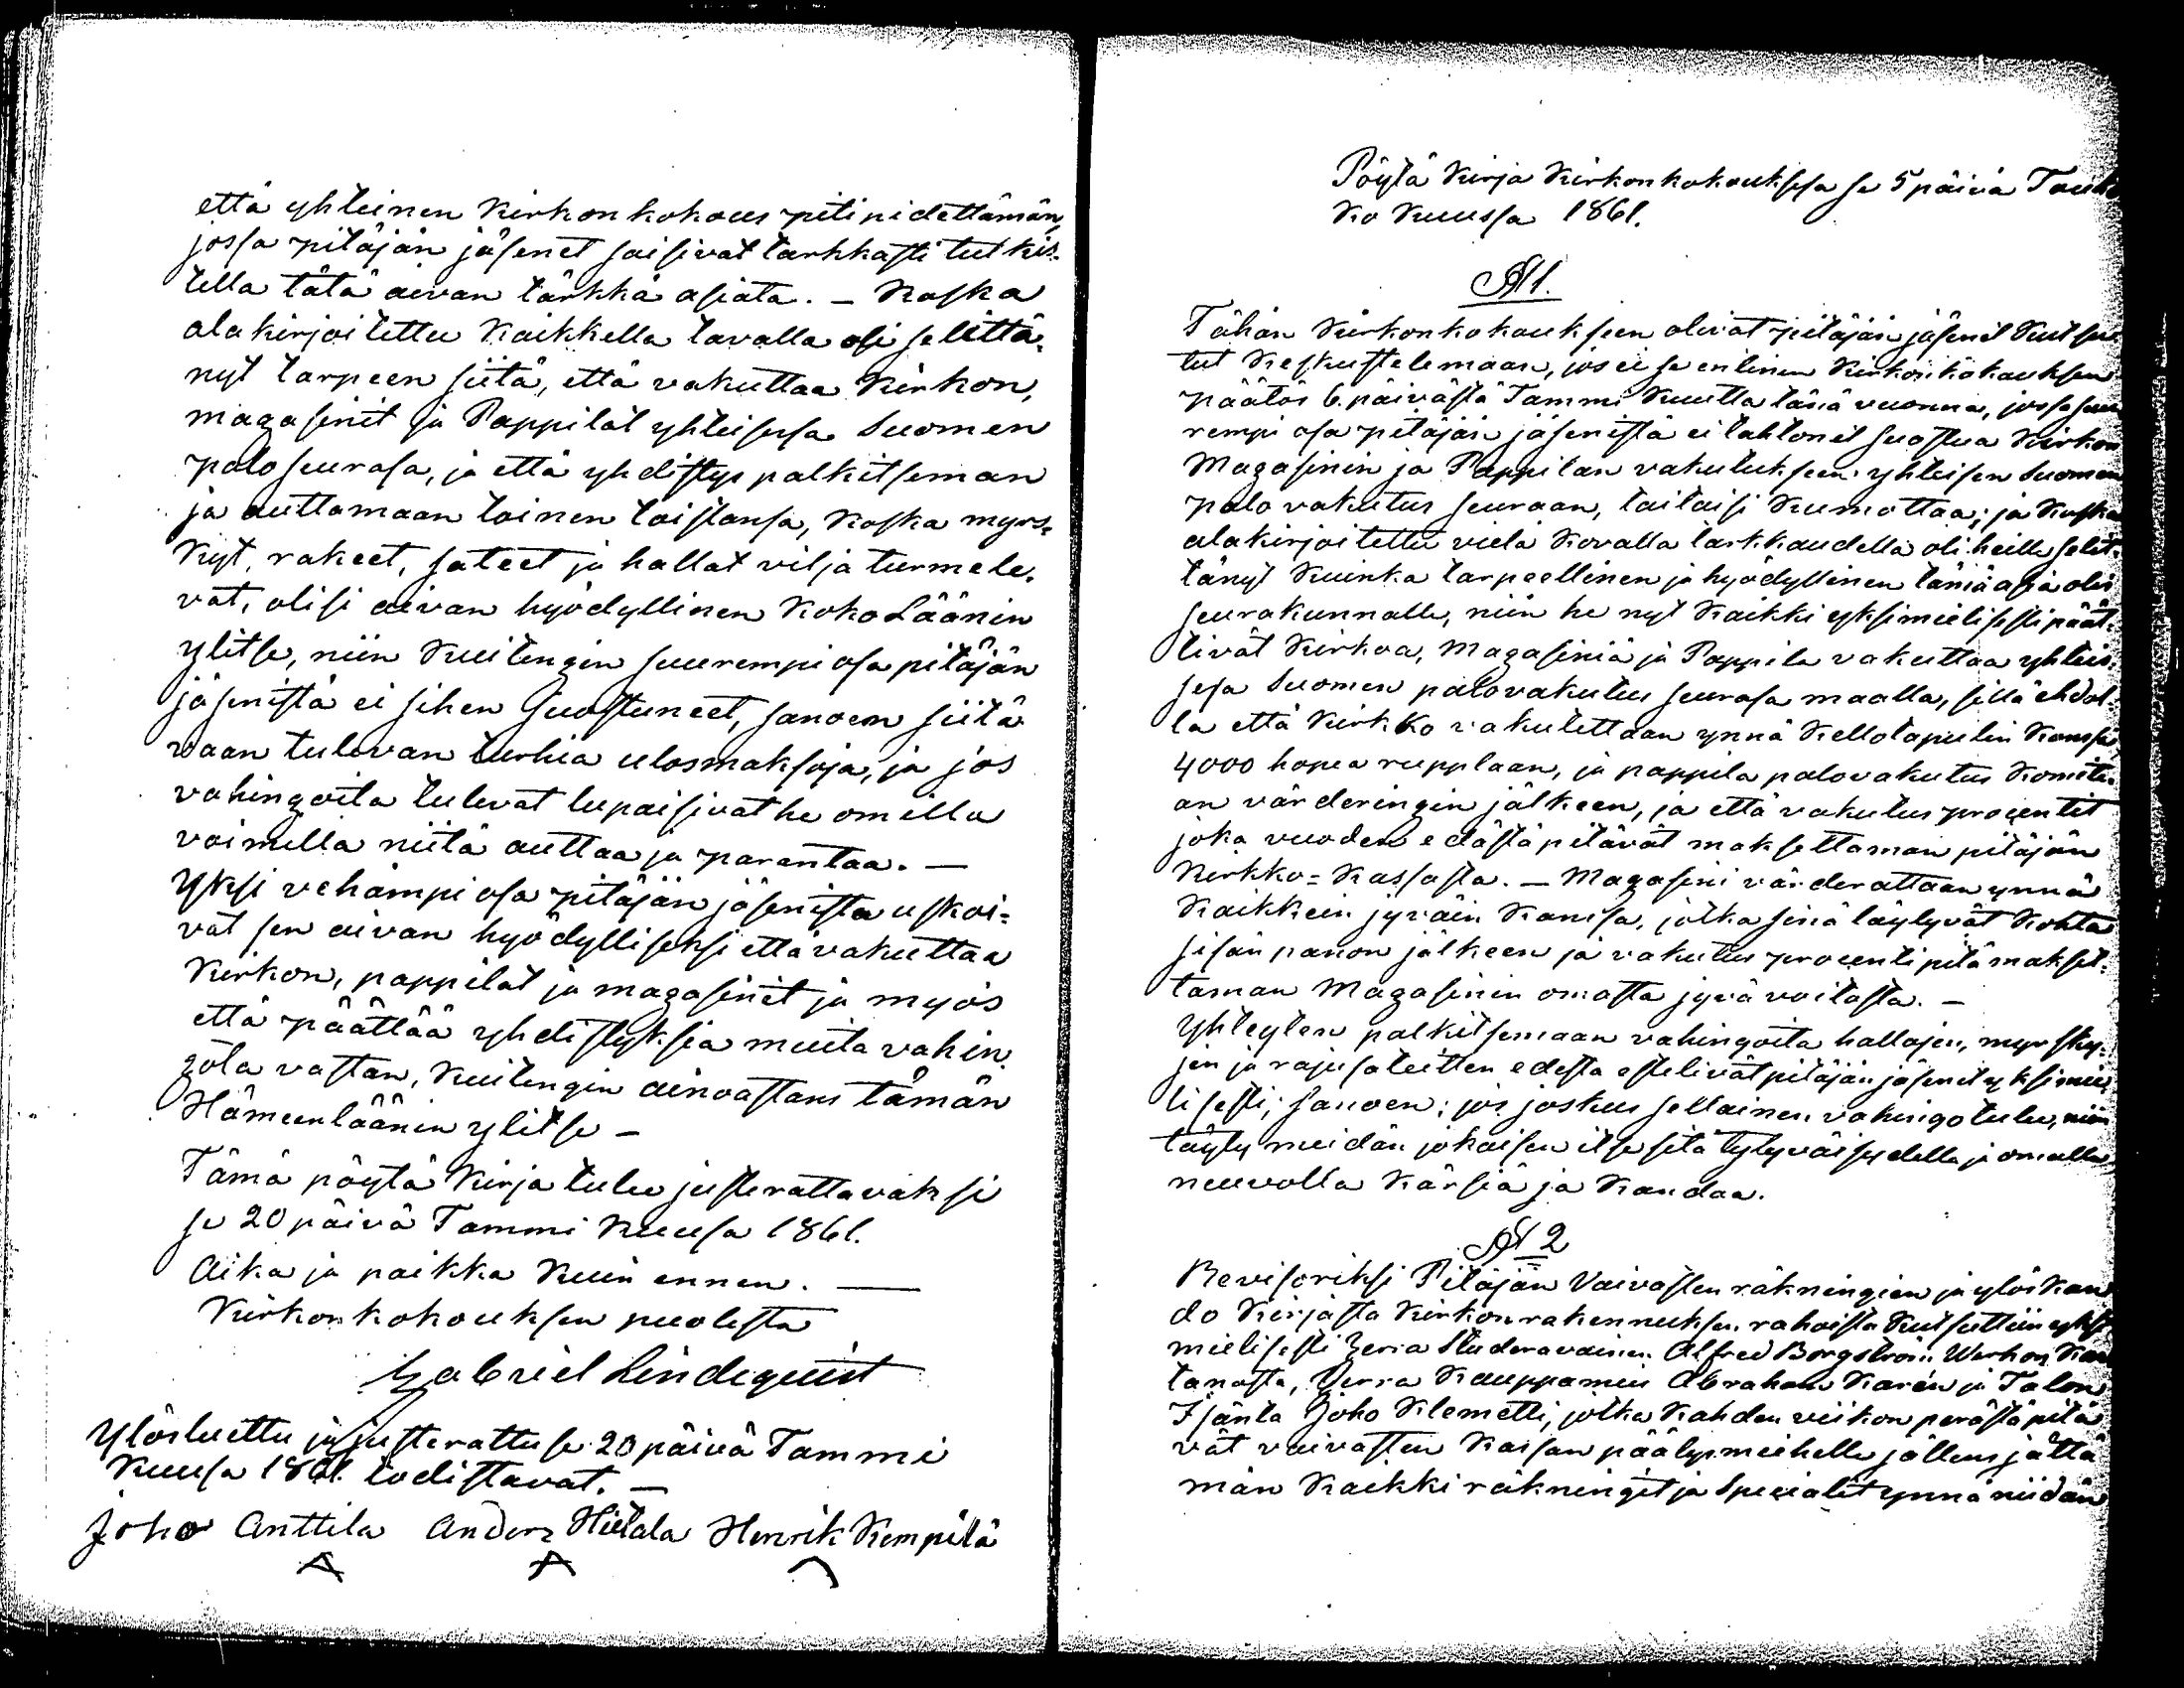 että yhteinen Kirkon kokous piti pidettämän,
jossa pitäjän jäsenet saisivat tarkkasti tutkis-
tella tätä aivan tärkkä asiata. — Koska
alakirjoitettu Kaikkella tavalla oli selittä-
nyt tarpeen siitä, että vakuttaa Kirkon,
magasinit ja Pappilat yhteisesä Suomen
paloseurasa, ja että yhdistys palkitseman
ja auttamaan toinen toistansa, Koska myrs-
Kyt, rakeet, sateet ja hallat vilja turmele-
vat, olisi aivan hyödyllinen Koko Läänin
ylitse, niin Kuitengin suurempi osa pitäjän
jäsenistä ei sihen suostuneet, sanoen siitä
vaan tulevan turhia ulosmaksoja, ja jos
vahingoita tulevat lupaisivat he omilla
voimilla niitä auttaa ja parantaa. —
Yksi vehämpi osa pitäjän jäsenistä uskoi-
vat sen aivan hyödylliseksi että vakuttaa
Kirkon, pappilat ja magasinit ja myös
että päättää yhdistyksia muita vahin-
goita vastan, Kuitengin ainoastans tämän
Hämeenläänin ylitse —
Tämä pöytä Kirja tulee justerattavaksi
se 20 päivä Tammi Kuusa 1861.
Aika ja paikka Kuin ennen. —
Kirkon kokouksen puolesta
Gabriel Lindequist
Ylösluettu ja justerattu se 20 päivä Tammi
Kuusa 1861. todistavat. —
Joho Anttila Anders Hietala Henrik Kempilä
Pöytä Kirja Kirkonkokouksesa se 5 päivä Touko
Ko Kuussa 1861.
§ 1.
Tähän Kirkonkokoukseen olivat pitäjän jäsenet Kutsu-
tut Keskustelemaan, jos ei se entinen Kirkonkokouksen
päätös 6. päivästä Tammi Kuutta tänä vuonna, jossa suu
rempi osa pitäjän jäsenistä ei tahtonet suostua Kirkon
Magasinin ja Pappilan vakutukseen yhteisen Suomen
palo vakutus seuraan, taitaisi Kumottaa; ja Koska
alakirjoitettu vielä Kovalla tarkkaudella oli heille selit-
tänyt Kuinka tarpeellinen ja hyödyllinen tämä asia olis
seurakunnalle, niin he nyt Kaikki yksimielisesti päät-
tivät Kirkoa, Magasinia ja Pappila vakuttaa yhteis-
sesa Suomen palovakutus seurasa maalla, sillä ehdol-
la että Kirkko vakutettaan ynnä Kellotapulin Kanssa,
4000 hopea rupplaan, ja pappila palovakutus Komite-
an värderingin jälkeen, ja että vakutus procentit
joka vuoden edästä pitävät maksettaman pitäjän
Kirkko-Kassasta. — Magasini värderattaan ynnä
Kaikkein jyväin Kansa, jotka sinä läytyvät Kohta
sisän panon jälkeen ja vakutus procenti pitä makset-
taman Magasinin omasta jyvä voitosta. —
Yhteyten palkitsemaan vahingoita hallojen, myrsky-
jen ja rajusateitten edesta estelivät pitäjän jäsenet yksimie-
lisesti, sanoen; jos joskus sellainen vahingo tulee, niin
täyty meidän jokaisen itse sitä tytyväisydellä ja omalla
neuvolla Kärsiä ja Kandaa.
§ 2
Revisoriksi Pitäjän Vaivasten räkningien ja ylöskan
do Kirjasta Kirkonrakennuksen rahoista Kutsuttiin yksi
mielisesti Herra Studeravainen Alfred Borgström Warkon Kar
tanosta, Herra Kauppamies Abraham Karén ja Talon
Isäntä Joho Klemetti, jotka Kahden viikon perästä pitä
vät vaivasten Kassan päälysmiehelle jällens jättä
män Kaikki räkningit ja Specialit ynnä niidän